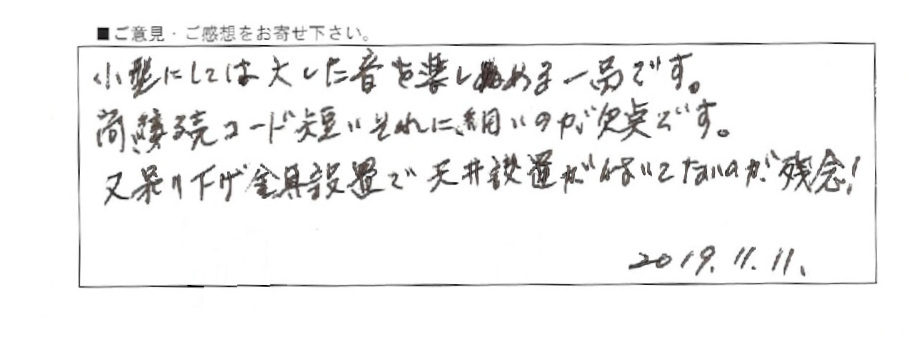 ■ご意見・ご感想をお寄せ下さい。
小型にしては大した音を楽しめる一品です。
尚接続コード短いそれに細いのが欠点です。
又吊り下げ金具設置で天井設置が ないのが残念!
2019.11.11.